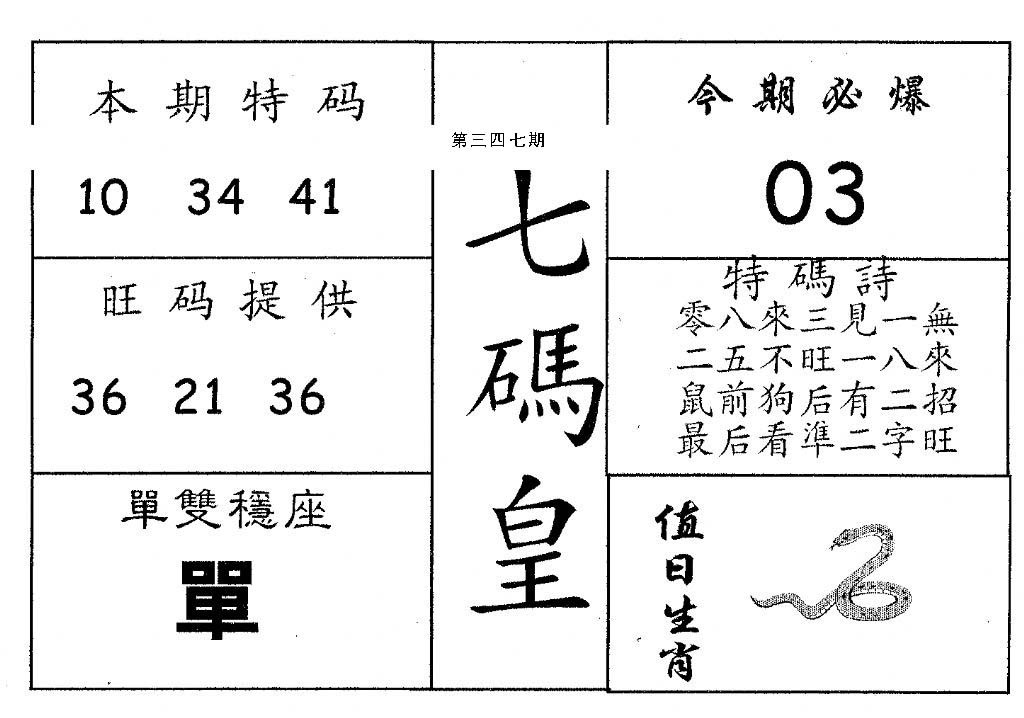 本期特码
10 34 41
旺码提供
36 21 36
單雙穩座
單
第三四七期
七碼皇
今期必爆
03
特碼詩
零八來三見一無
二五不旺一八來
鼠前狗后有二招
最后看準二字旺
值日生肖